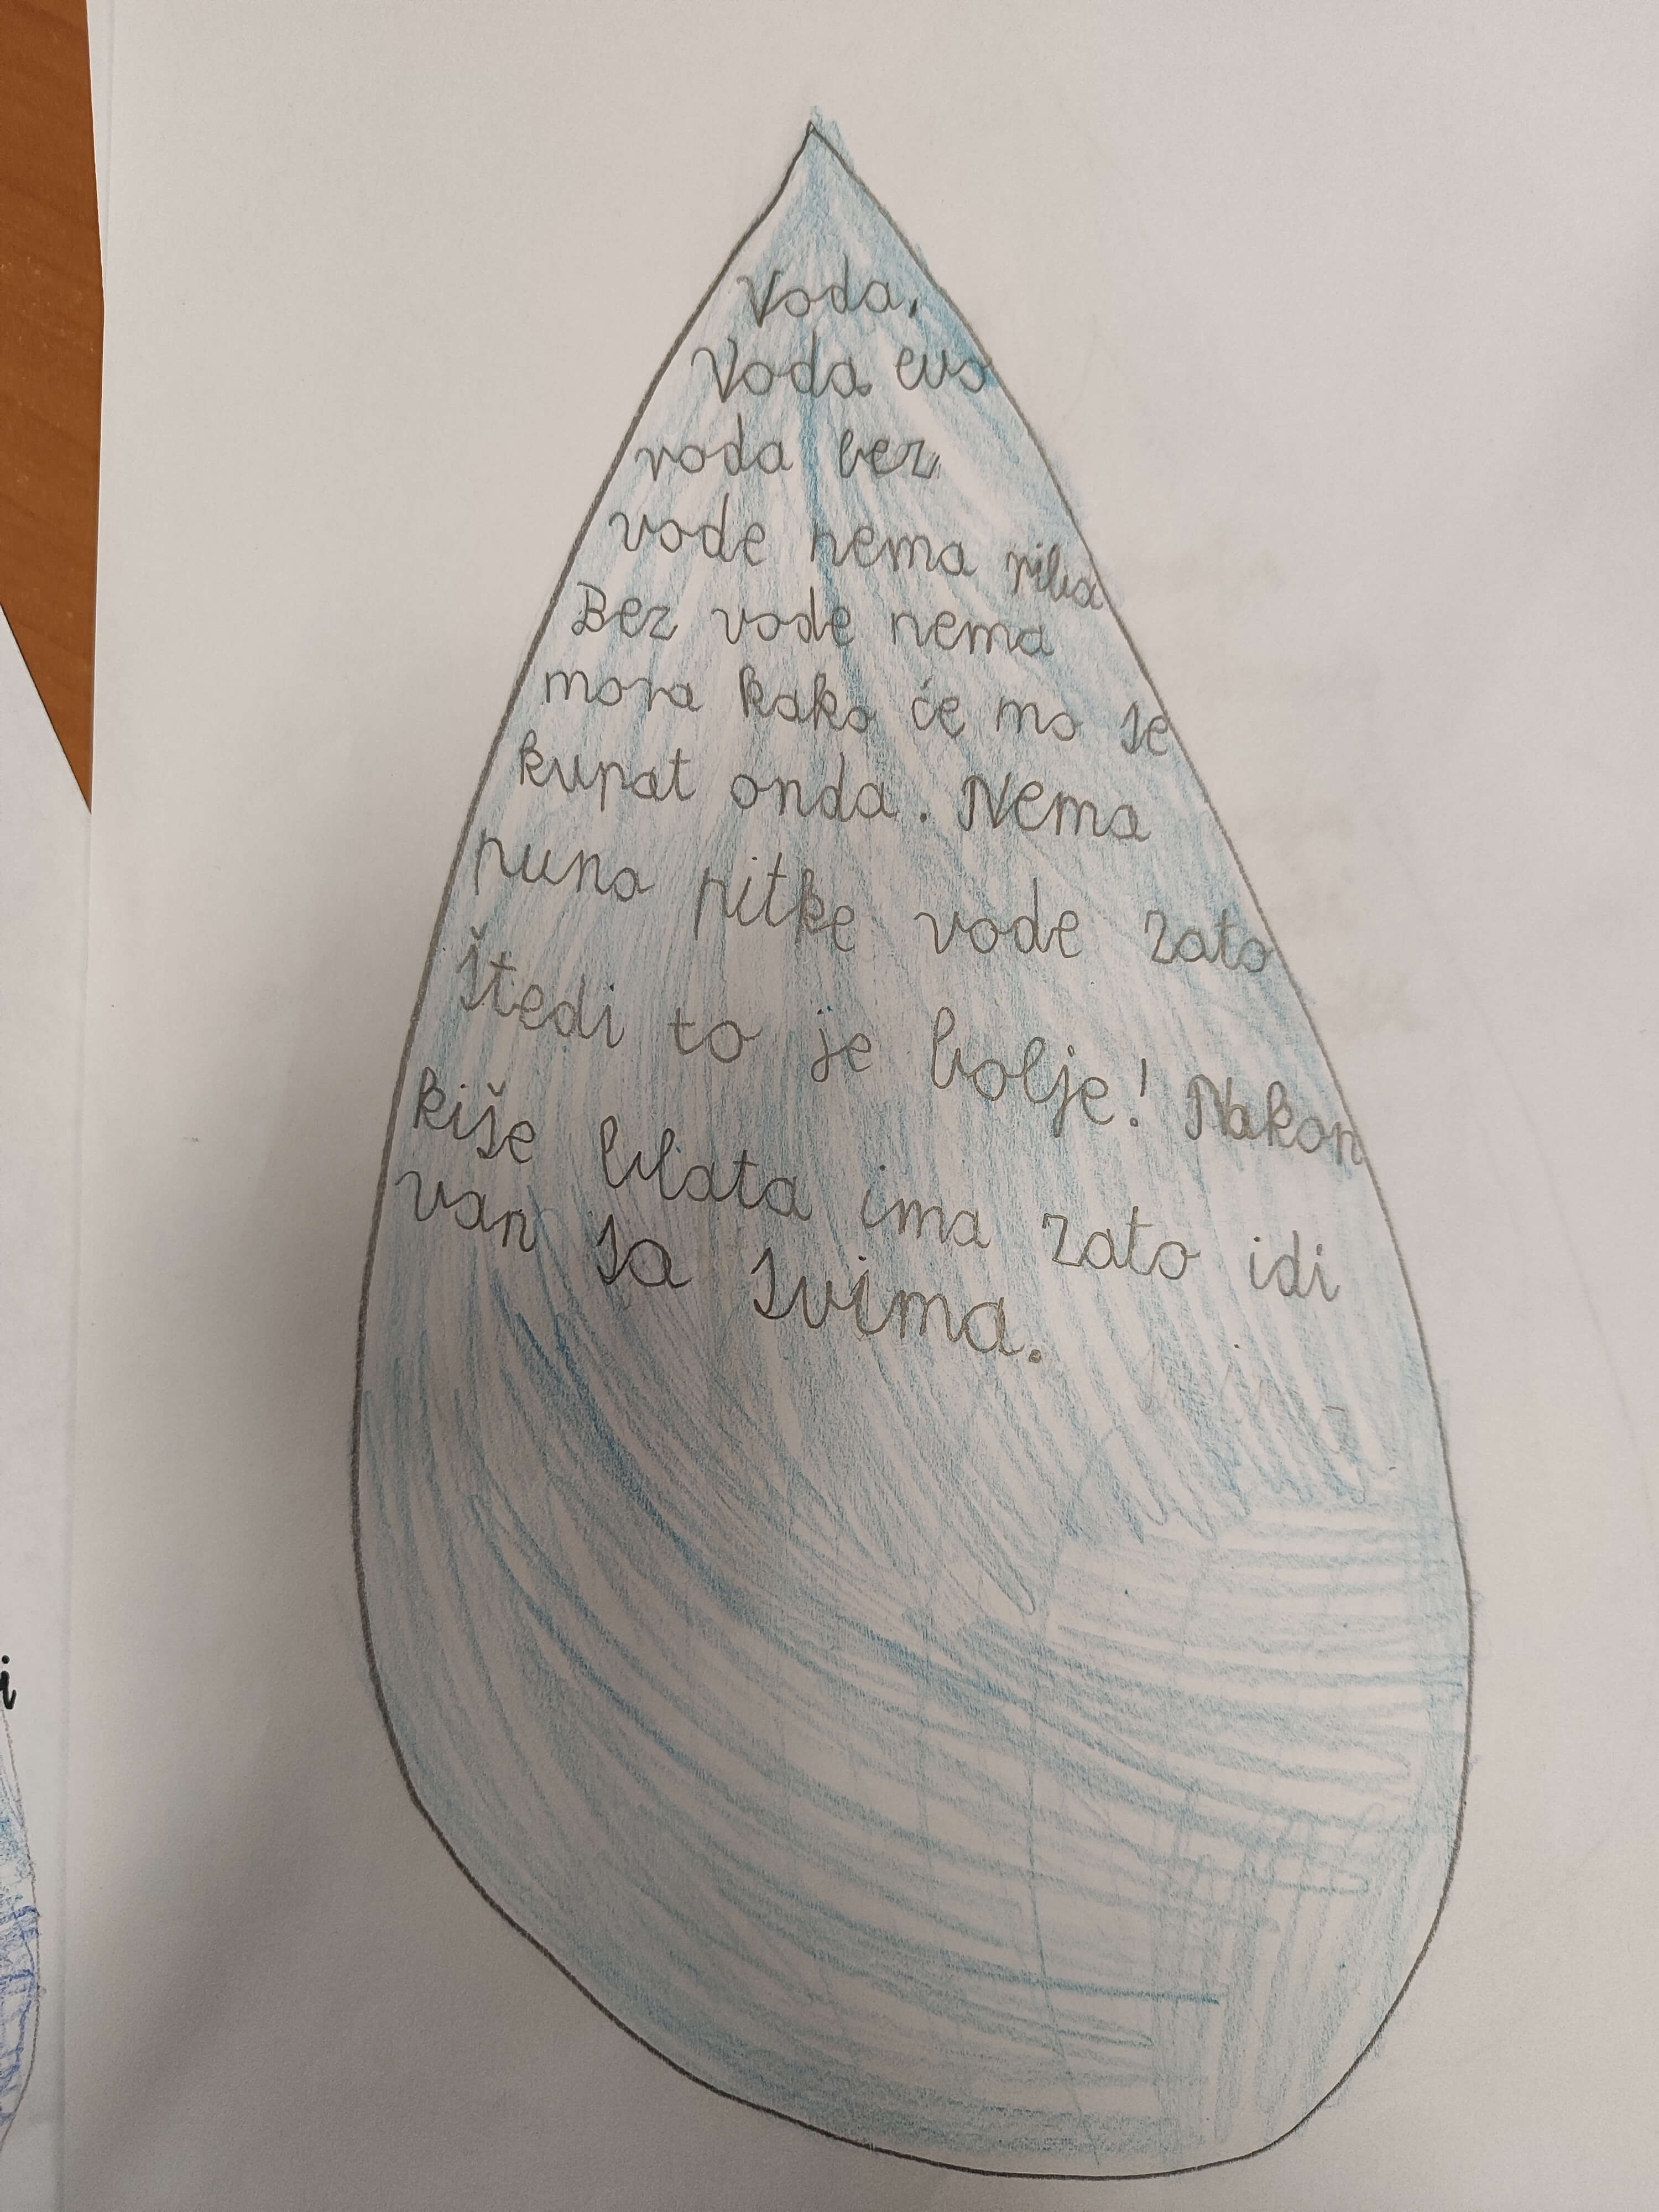 Voda.
Voda evo
voda bez
vode nema riba
Bez vode nema
mora kako će mo se
kupat onda. Nema
puno pitke vode zato
štedi to je bolje! Nakon
kiše blata ima zato idi
van sa svima.
i